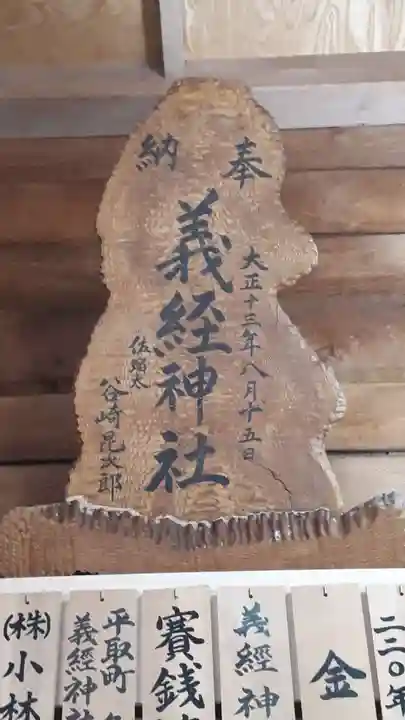 奉納
大正十三年八月十五日
義経神社
佐瑠太
谷崎昆次郎
二二〇年
金
義経神
賽銭
平取町
義経神社
㈱小林